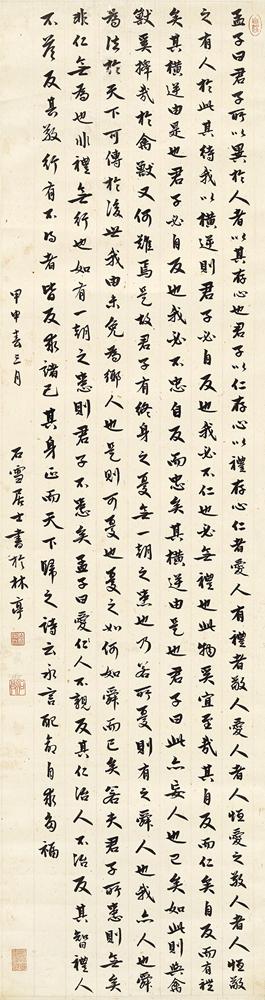 孟子曰君子所以異於人者以其存心也君子以仁存心以禮存心仁者愛人有禮者敬人愛人者人恆愛之敬人者人恆敬
之有人於此其待我以橫逆則君子必自反也我必不仁也必無禮也此物奚宜至哉其自反而仁矣自反而有禮
矣其橫逆由是也君子必自反也我必不忠自反而忠矣其橫逆由是也君子曰此亦妄人也已矣如此則與禽
獸奚擇哉於禽獸又何難焉是故君子有終身之憂無一朝之患也乃若所憂則有之舜人也我亦人也舜
為法於天下可傳於後世我由未免為鄉人也是則可憂也憂之如何如舜而已矣若夫君子所患則無矣
非仁無為也非禮無行也如有一朝之患則君子不患矣孟子曰愛人人不親反其仁治人不治反其智禮人
不答反其敬行有不得者皆反求諸己其身正而天下歸之詩云永言配命自求多福
甲申春三月
石雪居士書於林亭